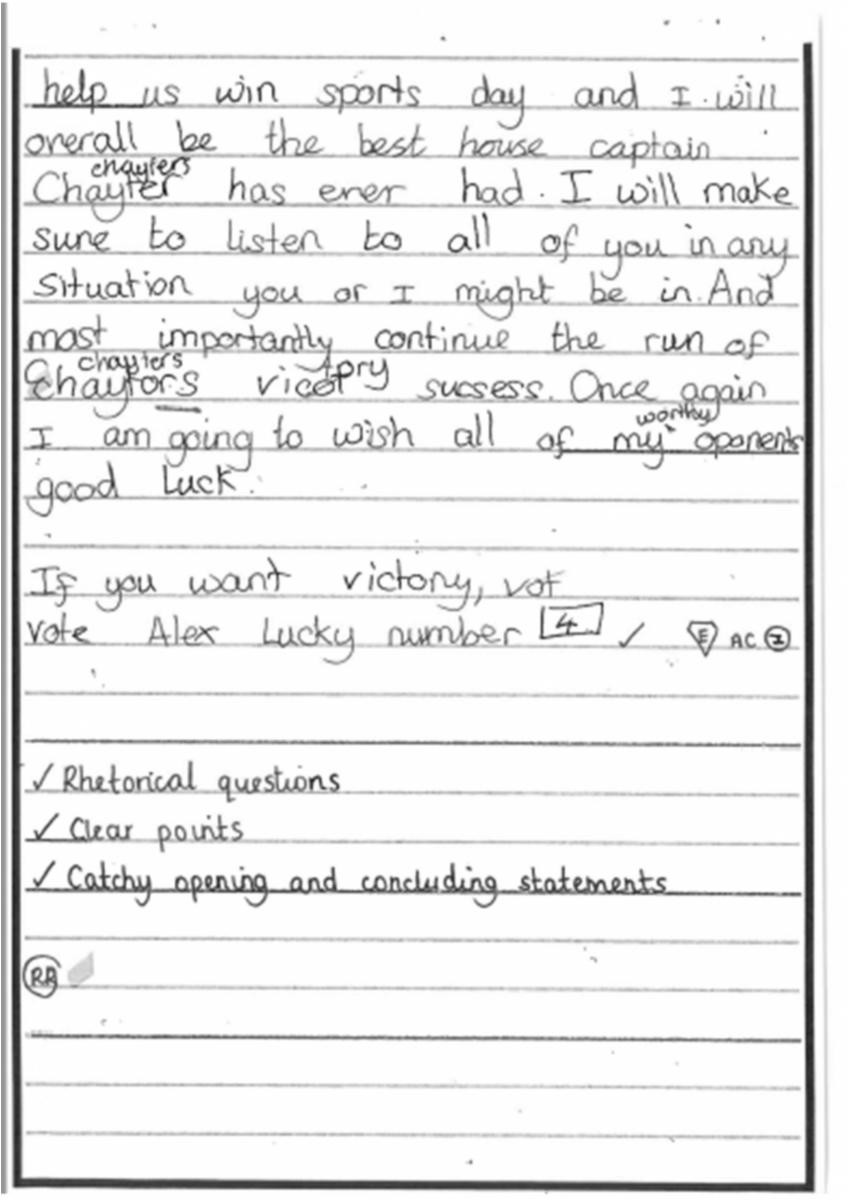 help us win sports day and I will
overall be the best house captain
chayters
Chayter has ever had. I will make
sure to listen to all of you in any
situation you or I might be in. And
most importantly continue the run of
chayters tory
Chaytors vicory sucsess. Once again
worthy
I am going to wish all of my oponents
good Luck.
If you want victory, vot
vote Alex Lucky number 4 ✓ E AC 2
✓ Rhetorical questions
✓ Clear points
✓ Catchy opening and concluding statements
RR